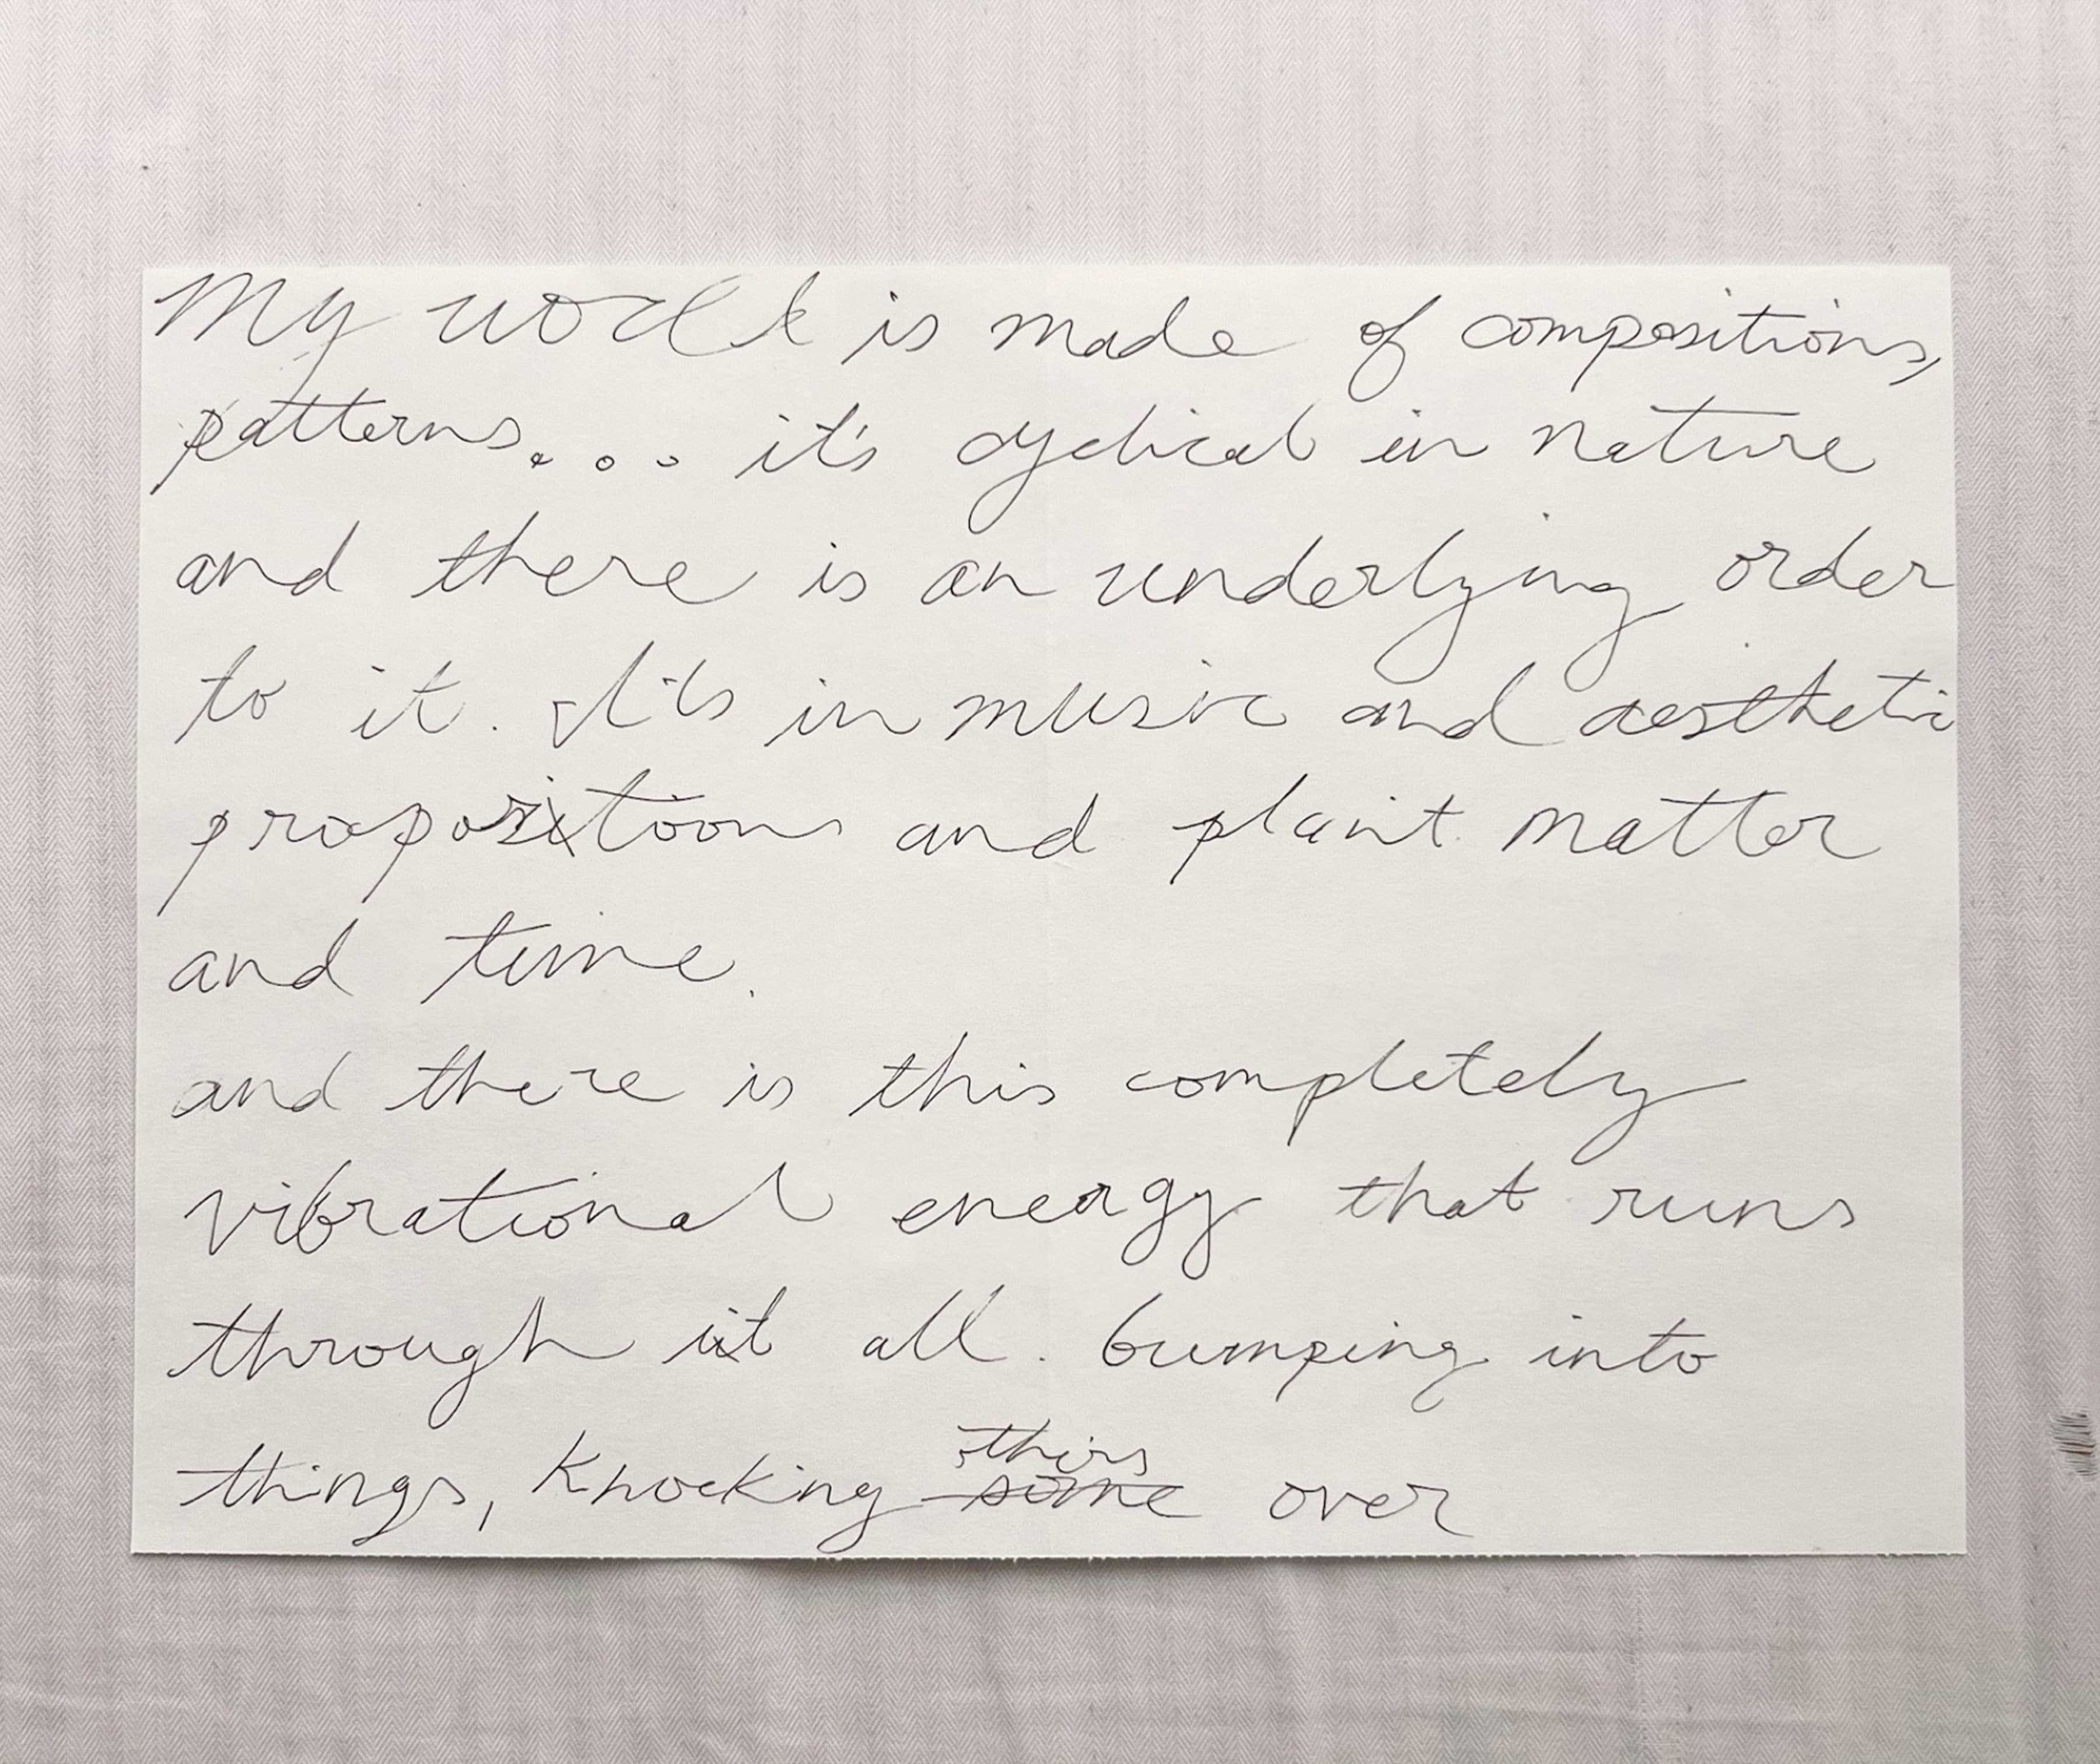 My world is made of compositions,
patterns... it's cyclical in nature
and there is an underlying order
to it. It's in music and aestheti
propositions and plant matter
and time.
and there is this completely
vibrational energy that runs
through it all. bumping into
things, knocking some over